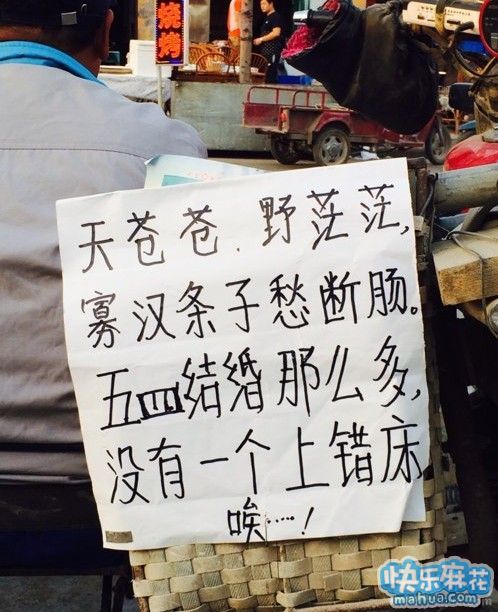 烧烤
天苍苍、野茫茫,
寡汉条子愁断肠。
五四结婚那么多,
没有一个上错床
唉……!
快乐麻花
mahua.com